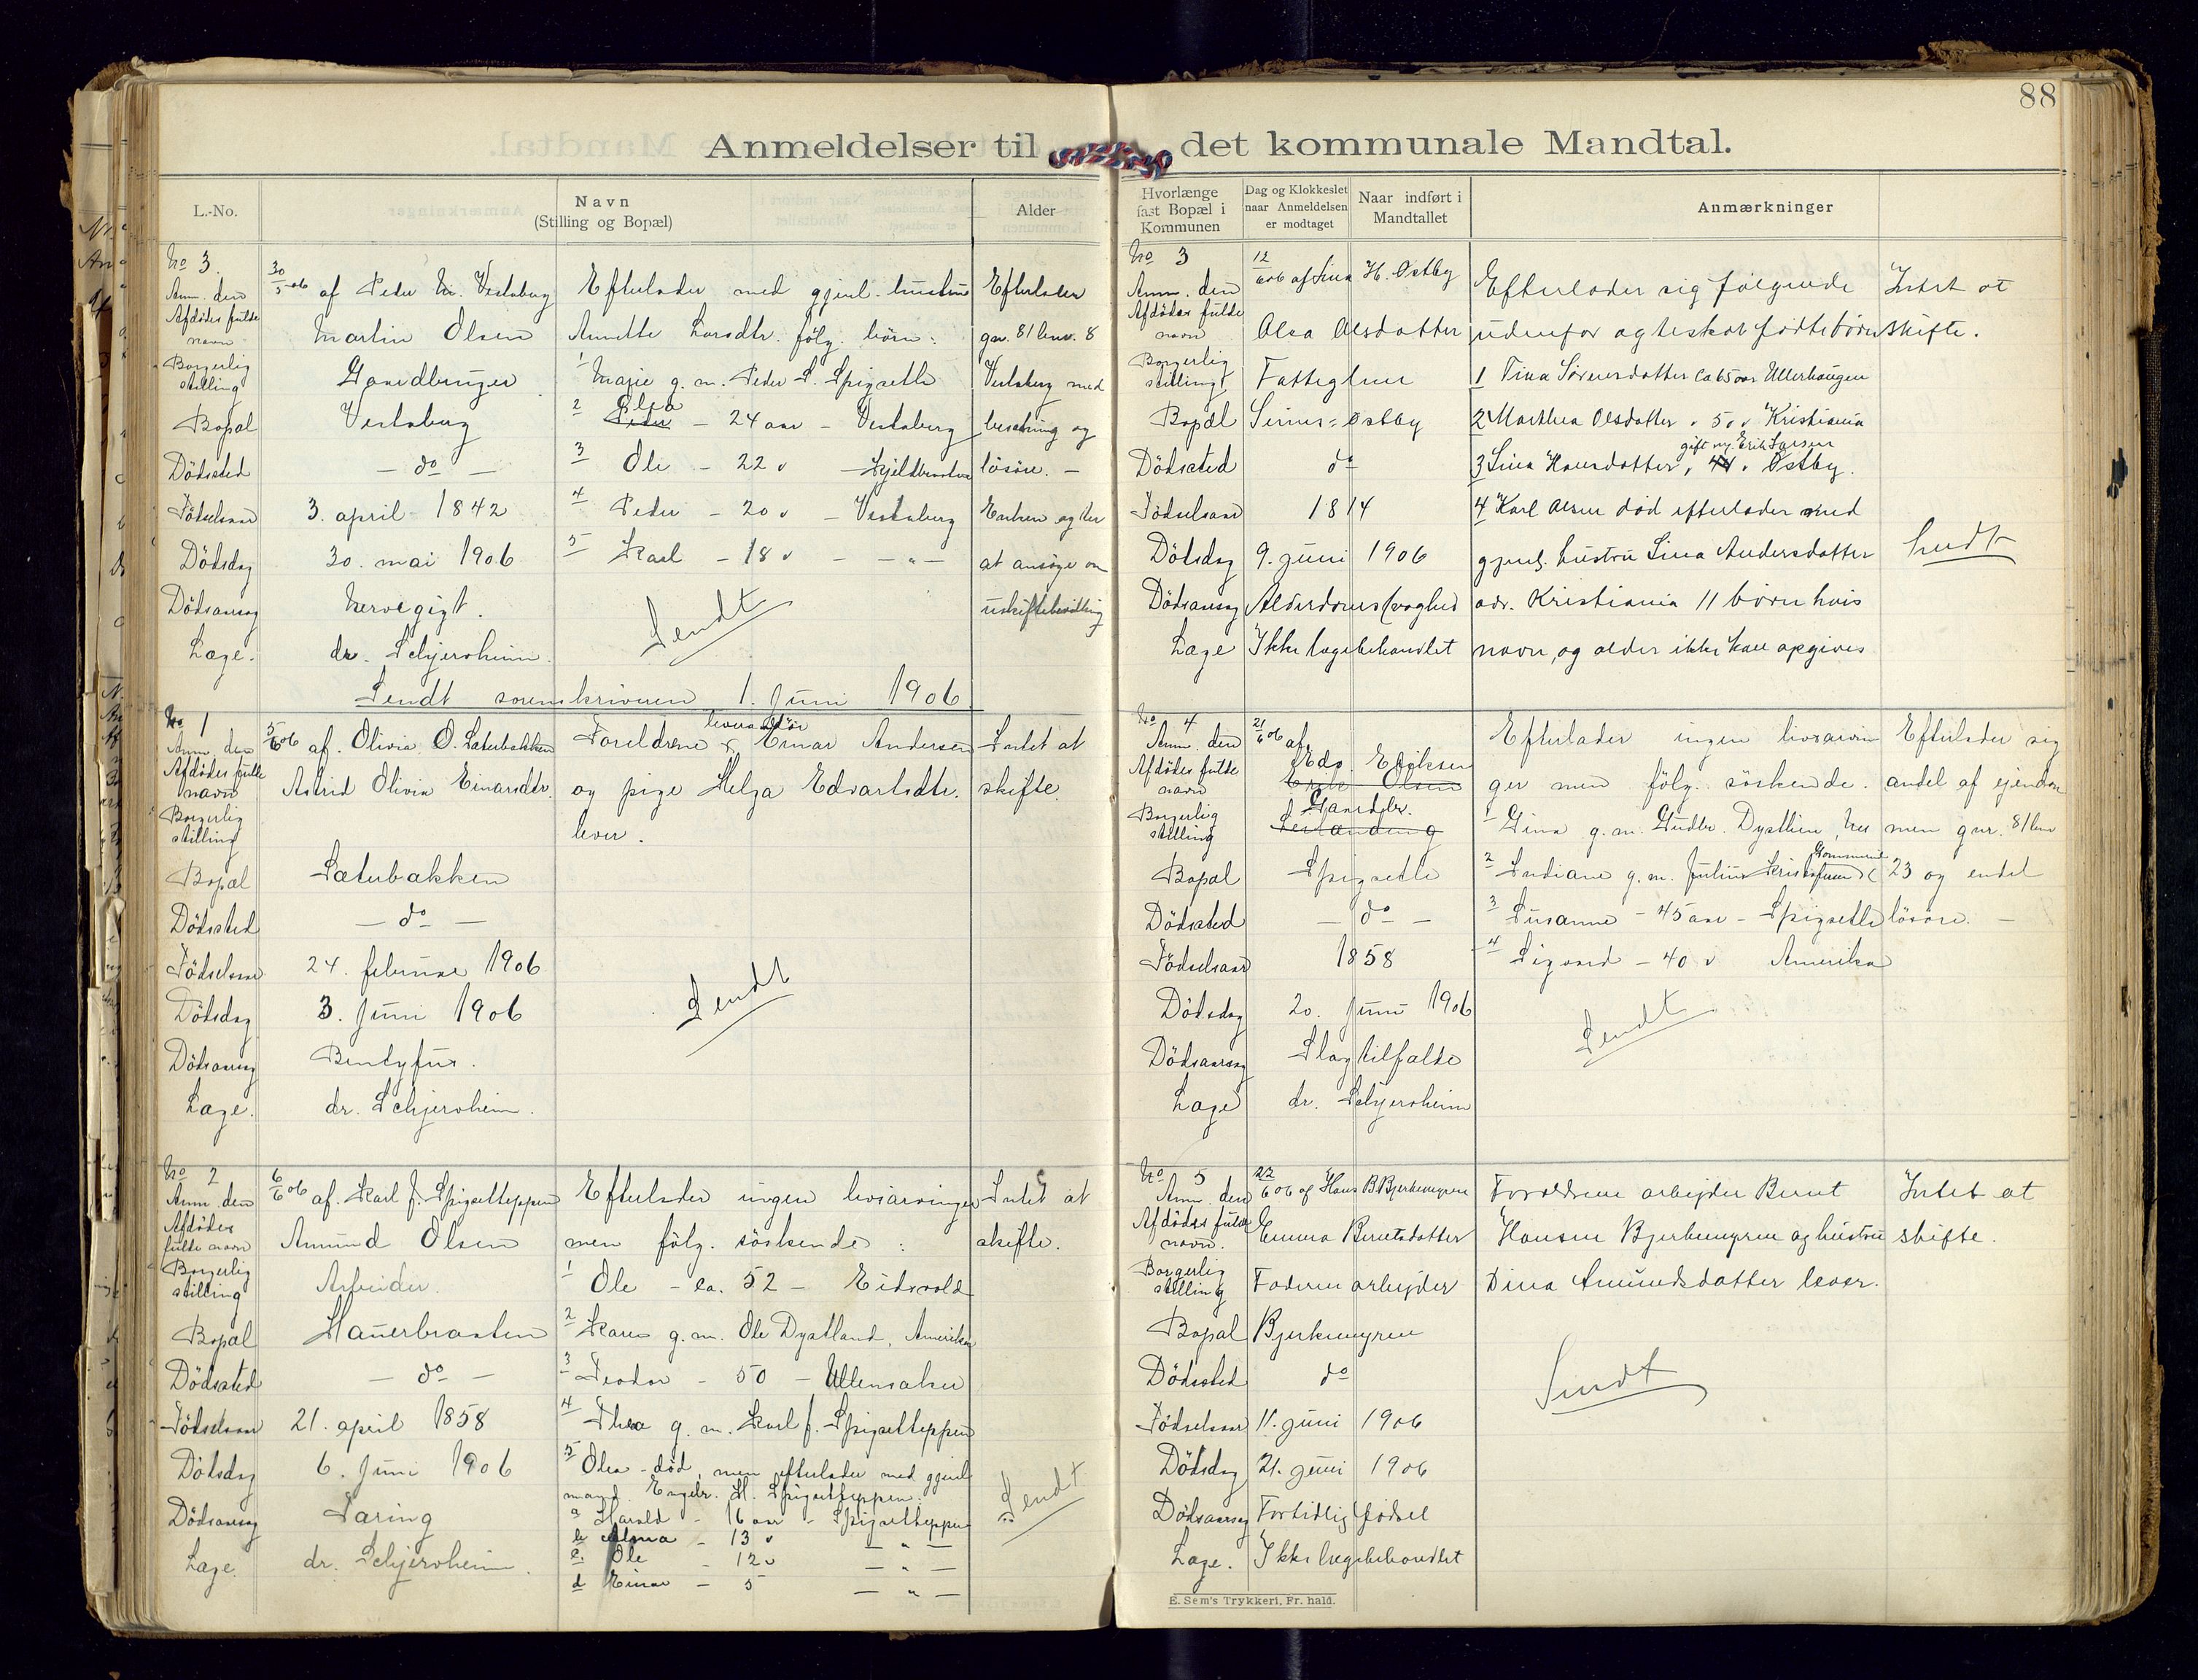 88
Anmeldelser til det kommunale Mandtal.
L.-No.
Navn
(Stilling og Bopæl)
Alder
No 3.
Anm. den 30/5 06 af Peder M. Vestaberg
Afdødes fulde navn Martin Olsen
Borgerlig stilling Gaardbruger
Bopæl Vestaberg
Dödssted - do -
Födselsaar 3. april 1842
Dödsdag 30. mai 1906
Dödsaarsag Nervegigt.
Læge. dr. Schjersheim.
Efterlader med gjenl. hustru
Annette Larsdtr. fölg. börn:
1 Marie g. m. Peder S. Spigseth
2 Peder Olea - 24 aar - Vestaberg
3 Ole - 22 v - Skjeldbrasten
4 Peder - 20 v - Vestaberg
5 Karl - 18 v - " -
Sendt
Efterlader
gnr. 81 bnr. 8
Vestaberg med
besetning og
lösöre. -
Enken agter
at ansöge om
uskiftebevilling
Sendt sorenskriveren 1. Juni 1906
No 1
Anm. den 5/6 06 af Olivia O. Sæterbakken
Afdödes fulde navn Astrid Olivia Einarsdtr.
Borgerlig stilling
Bopæl Sæterbakken
Dödssted - do -
Födselsaar 24. februar 1906
Dödsdag 3. Juni 1906
Dödsaarsag
Læge. dr. Schjersheim.
Forældrene Einar Andersen
og pige Helga Edvartsdtr.
lever.
Sendt
Intet at
skifte.
No 2
Anm. den 6/6 06 af Karl J. Spigsetteppen
Afdödes fulde navn Amund Olsen
Borgerlig stilling Arbeider.
Bopæl Hauerbraaten
Dödssted - do -
Födselsaar 21. april 1858
Dödsdag 6. Juni 1906
Dödsaarsag Tæring
Læge. dr. Schjersheim.
Efterlader ingen livsarvinger
men fölg. söskende:
1 Ole - ca. 52 - Eidsvold
2 Karen g. m. Ole Dystland, Amerika
3 Teodor - 50 - Ullensaker
4 Thea g. m. Karl J. Spigsetteppen
5 Olea - död, men efterlader med gjenl.
mand Engebr. H. Spigsetteppen:
a Harald - 16 aar - Spigsetteppen
b Alma - 13 v - " -
c Ole - 12 v - " -
d Einar - 5 - " -
Intet at
skifte.
Sendt
Hvorlænge
fast Bopæl i
Kommunen
Dag og Klokkeslet
naar Anmeldelsen
er modtaget
Naar indført i
Mandtallet
Anmærkninger
No 3
Anm. den 12/6 06 af Lina H. Østby
Afdödes fulde navn Olea Olsdatter
Borgerlig stilling Fattiglem
Bopæl Östby
Dödssted do
Födselsaar 1814
Dödsdag 9. juni 1906
Dödsaarsag Alderdomssvaghed
Læge Ikke lægebehandlet
Efterlader sig følgende
udenfor ægteskab fødte børn
1 Tina Sörensdatter ca 65 aar Ullerhaugen
2 Marthea Olsdatter " 50 v Kristiania
gift m. Erik Larsen
3 Lina Hansdatter, 44 " Østby.
4 Karl Olsen död efterlader med
gjenl. hustru Lina Andersdatter
adr. Kristiania 11 børn hvis
navn, og alder ikke kan opgives
Intet at
skifte.
Sendt
No 4
Anm. den 21/6 06 af
Afdödes fulde navn Edv. Eriksen
Erik Olsen
Borgerlig stilling Gaardbr.
Bopæl Spigseth
Dödssted - do -
Födselsaar 1858
Dödsdag 20. Juni 1906
Dödsaarsag Slagtilfælde
Læge dr. Schjersheim
Efterlader ingen livsarvin
ger men fölg. söskende.
1 Gina g. m. Gudbr. Dysthien, her
2 Indiane g. m. Julius Kristofersen
3 Susanne - 45 aar - Spigseth
4 Sigvard - 40 v Amerika
Sendt
Efterlader sig
andel af ejendom
men gnr. 81 bnr
23 og endel
lösöre. -
No 5
Anm. den 22/6 06 af Hans B. Bjerkemyren
Afdödes fulde navn. Emma Berntsdatter
Borgerlig stilling Faderen arbejder
Bopæl Bjerkemyren
Dödssted do
Födselsaar 11. juni 1906
Dödsdag 21. juni 1906
Dödsaarsag Fortidlig fødsel
Læge. Ikke lægebehandlet
Forældrene arbejder Bernt
Hansen Bjerkemyren og hustru
Dina Amundsdatter lever.
Sendt
Intet at
skifte.
E. Sem's Trykkeri, Fr. hald.